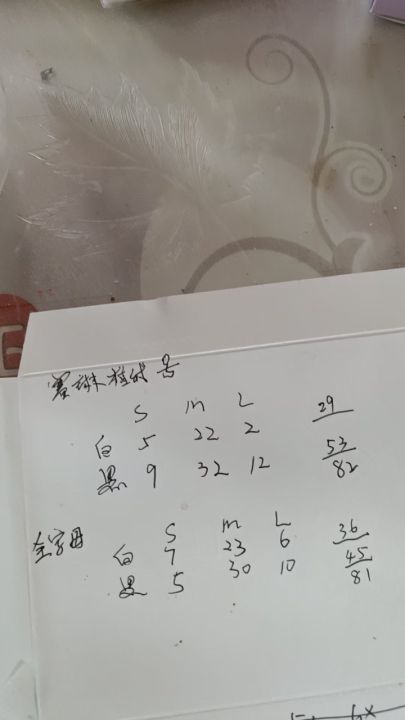 S M L
29
白 5 22 2
53
黑 9 32 12
82
全字母
S M L
36
白 7 23 6
45
黑 5 30 10
81